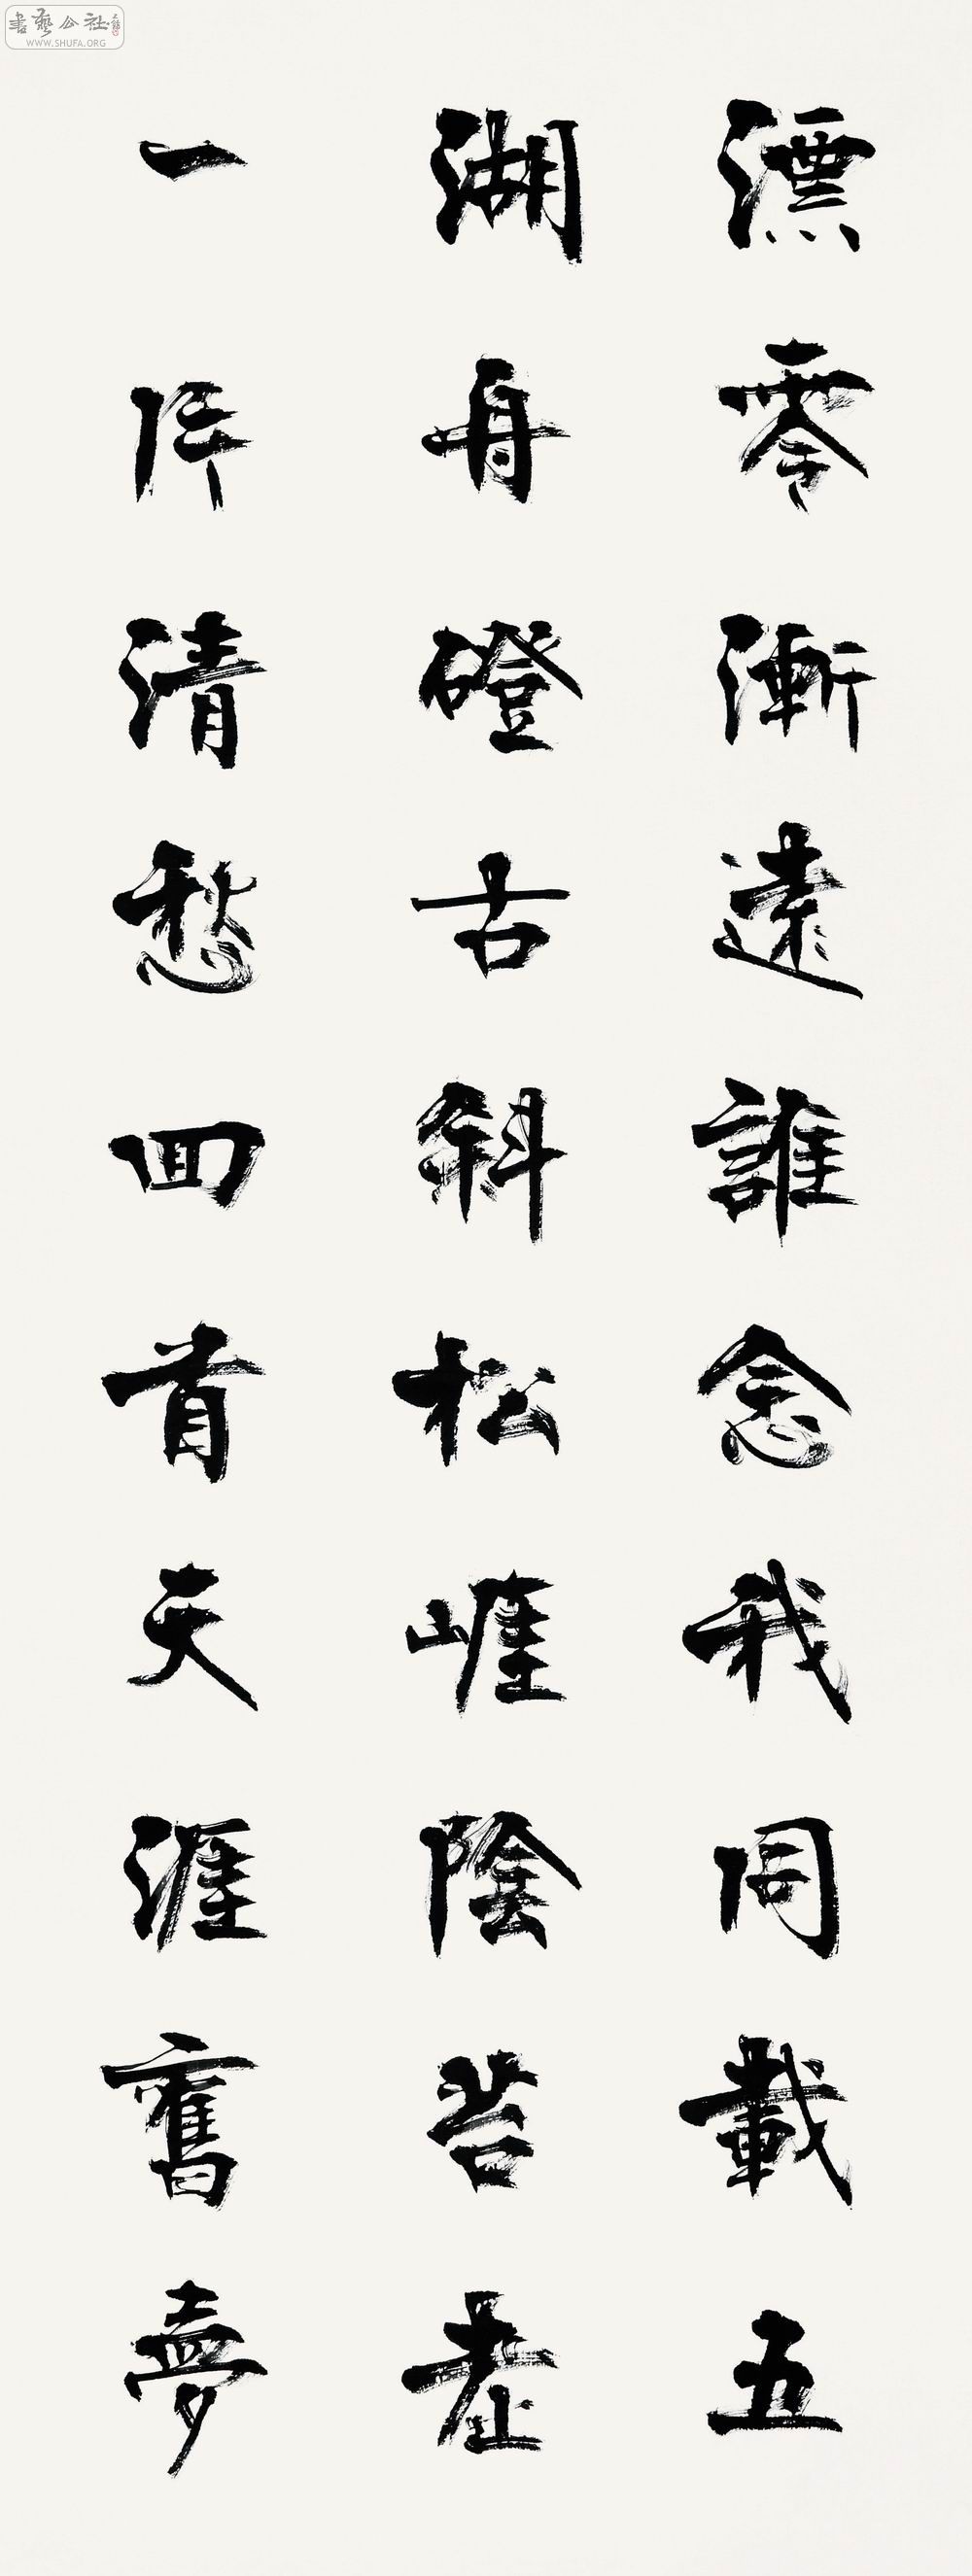 書藝公社
WWW.SHUFA.ORG
漂零漸遠誰念我同載五
湖舟磴古斜松崕陰苔老
一片清愁回首天涯舊夢